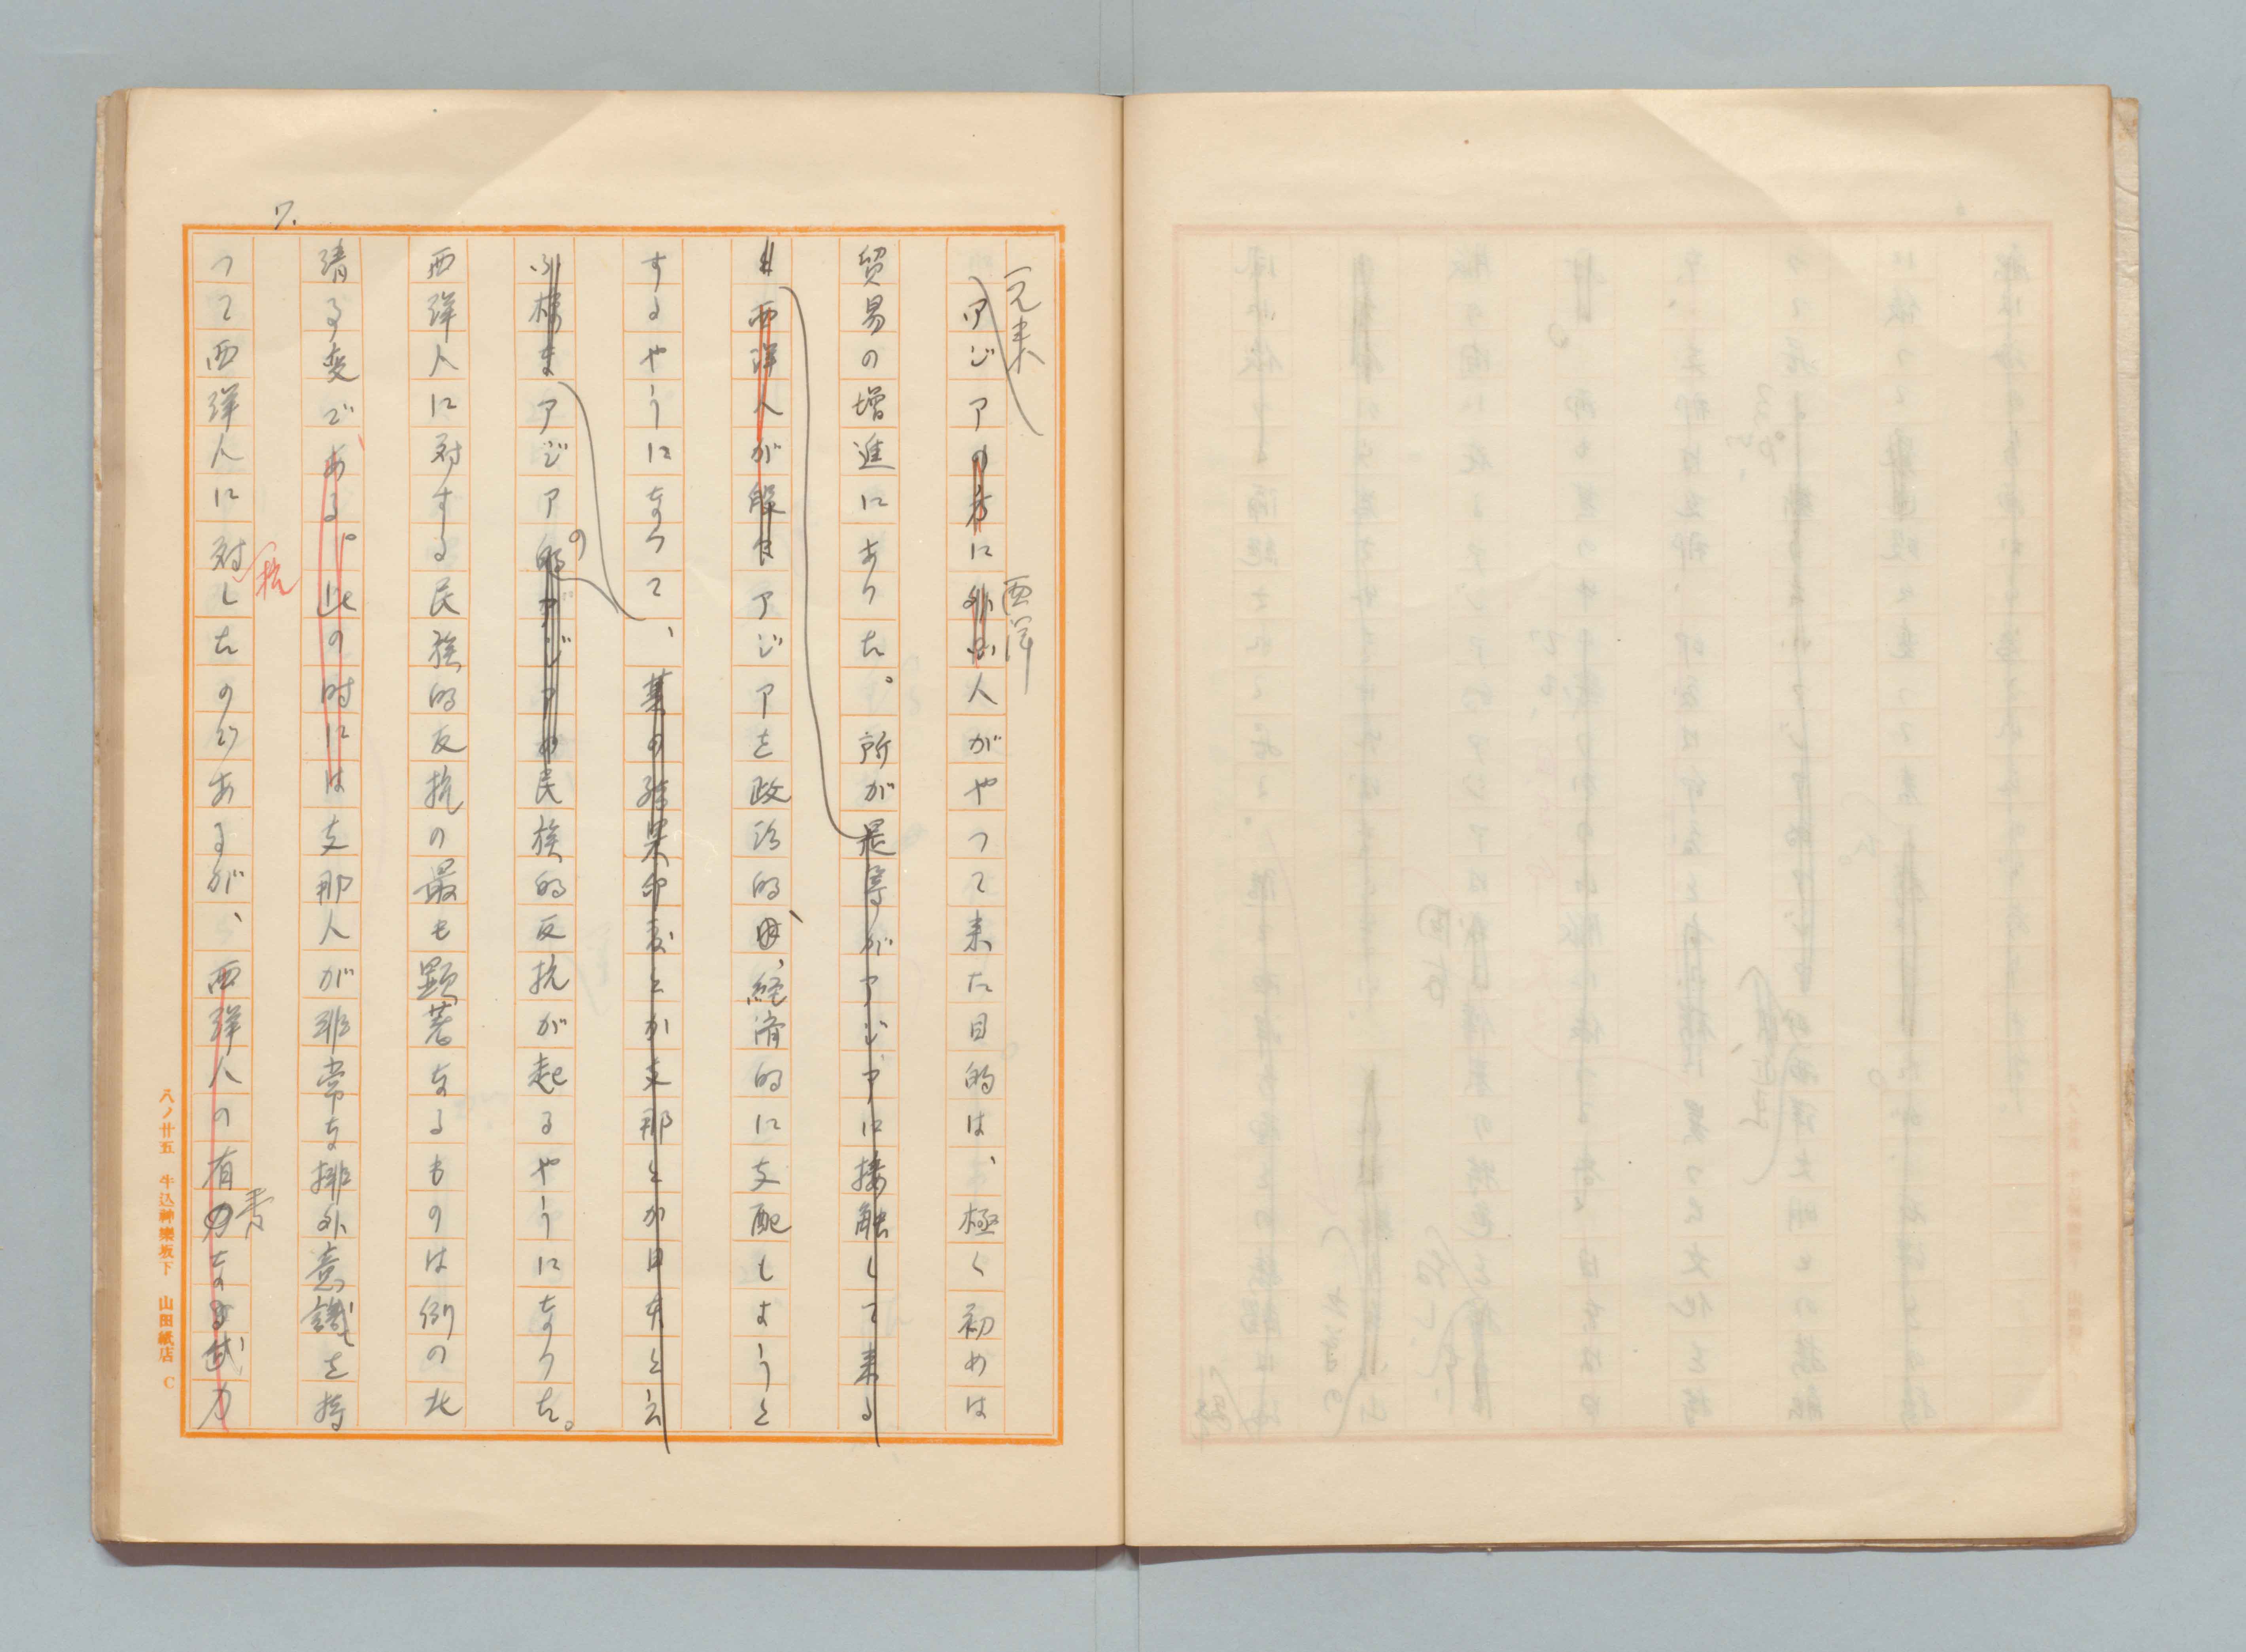 7.
元来
アジアの方に外部人がやつて来た目的は、極く初めは
西洋
貿易の増進にあつた。所が是等がアジアに接触して来る
と西洋人が段々アジアを政治的、経済的に支配しようと
するやうになつて、其の結果印度とか支那とか日本と云
ふ様なアジア的アジアの民族的反抗が起るやうになつた。
の
西洋人に対する民族的反抗の最も顕著なるものは例の北
清事変である。此の時には支那人が非常な排外意識を持
つて西洋人に対したのであるが、西洋人の有力なる武力
抗
秀
八ノ廿五 牛込神樂坂下 山田紙店 C